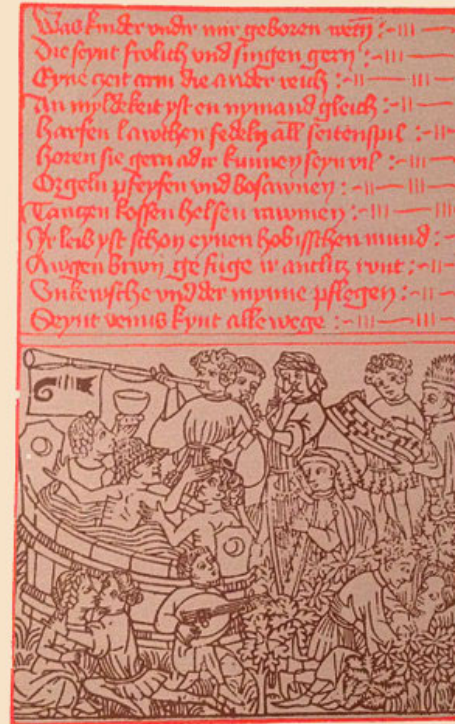 Was kinder vndir mir geboren werdñ :~III—
Die seynt frolich vnd singen gern :~III—
Eyne czeit arm die ander reich :~II—II—
An myldekeit yst en nymand gleich :~II—
Harfen lawthen fedeln all seitenspil :~II—
Horen sie gern adir kunnen seyn vil :~III—
Orgeln pfeyfen vnd bosawnen :~II—III
Tantzen kossen helsen rawmen :~III—III
Ir leib yst schon eynen hobisschen mund :~
Awgen brwn ge fuge ir antlitz rvnt :~II—
Vnkewsche vnd der mynne pflegen :~II—
Seynt venus kynt alle wege :~III—III—